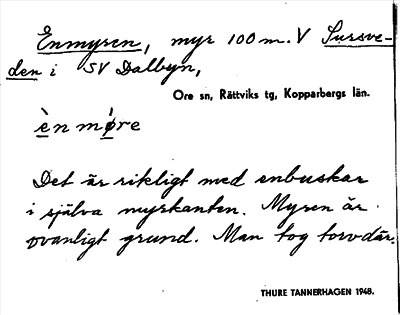 Enmyren, myr 100 m. V Sursve-
den i SV Dalbyn,
Ore sn, Rättviks tg, Kopparbergs län.
èn mǿre
Det är rikligt med enbuskar
i själva myrkanten. Myren är
ovanligt grund. Man tog torv där.
THURE TANNERHAGEN 1948.